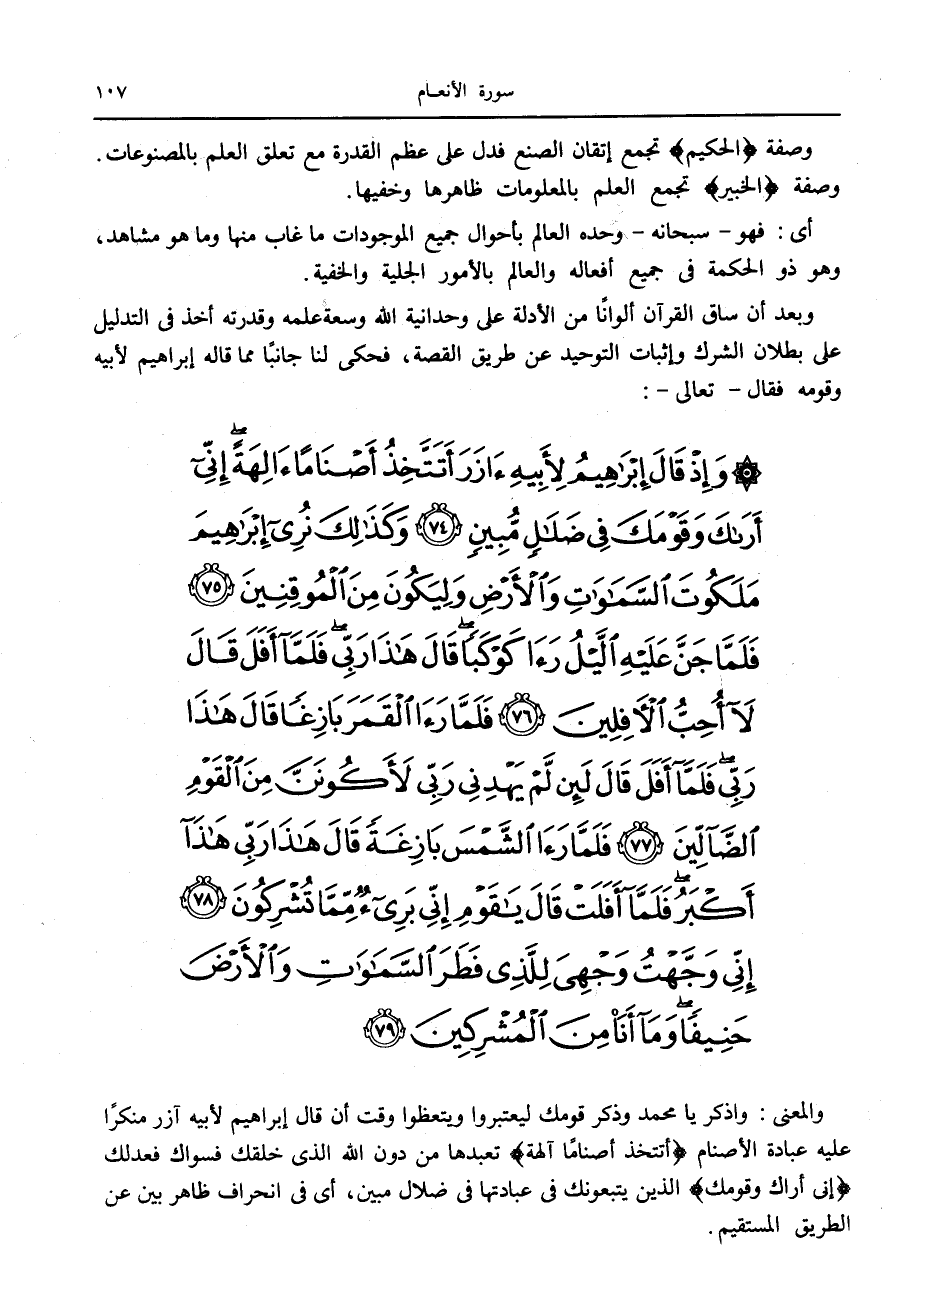 سورة الأنعـام
١٠٧
وصفة ﴿الحكيم﴾ تجمع إتقان الصنع فدل على عظم القدرة مع تعلق العلم بالمصنوعات.
وصفة ﴿الخبير﴾ تجمع العلم بالمعلومات ظاهرها وخفيها.
أى : فهو – سبحانه – وحده العالم بأحوال جميع الموجودات ما غاب منها وما هو مشاهد،
وهو ذو الحكمة فى جميع أفعاله والعالم بالأمور الجلية والخفية.
وبعد أن ساق القرآن ألوانًا من الأدلة على وحدانية الله وسعة علمه وقدرته أخذ فى التدليل
على بطلان الشرك وإثبات التوحيد عن طريق القصة، فحكى لنا جانبًا مما قاله إبراهيم لأبيه
وقومه فقال – تعالى – :
۞ وَإِذْ قَالَ إِبْرَٰهِيمُ لِأَبِيهِ ءَازَرَ أَتَتَّخِذُ أَصْنَامًا ءَالِهَةً ۖ إِنِّىٓ
أَرَىٰكَ وَقَوْمَكَ فِى ضَلَٰلٍ مُّبِينٍ ﴿٧٤﴾ وَكَذَٰلِكَ نُرِىٓ إِبْرَٰهِيمَ
مَلَكُوتَ ٱلسَّمَٰوَٰتِ وَٱلْأَرْضِ وَلِيَكُونَ مِنَ ٱلْمُوقِنِينَ ﴿٧٥﴾
فَلَمَّا جَنَّ عَلَيْهِ ٱلَّيْلُ رَءَا كَوْكَبًا ۖ قَالَ هَٰذَا رَبِّى ۖ فَلَمَّآ أَفَلَ قَالَ
لَآ أُحِبُّ ٱلْءَافِلِينَ ﴿٧٦﴾ فَلَمَّا رَءَا ٱلْقَمَرَ بَازِغًا قَالَ هَٰذَا
رَبِّى ۖ فَلَمَّآ أَفَلَ قَالَ لَئِن لَّمْ يَهْدِنِى رَبِّى لَأَكُونَنَّ مِنَ ٱلْقَوْمِ
ٱلضَّآلِّينَ ﴿٧٧﴾ فَلَمَّا رَءَا ٱلشَّمْسَ بَازِغَةً قَالَ هَٰذَا رَبِّى هَٰذَآ
أَكْبَرُ ۖ فَلَمَّآ أَفَلَتْ قَالَ يَٰقَوْمِ إِنِّى بَرِىٓءٌ مِّمَّا تُشْرِكُونَ ﴿٧٨﴾
إِنِّى وَجَّهْتُ وَجْهِىَ لِلَّذِى فَطَرَ ٱلسَّمَٰوَٰتِ وَٱلْأَرْضَ
حَنِيفًا ۖ وَمَآ أَنَا۠ مِنَ ٱلْمُشْرِكِينَ ﴿٧٩﴾
والمعنى : واذكر يا محمد وذكر قومك ليعتبروا ويتعظوا وقت أن قال إبراهيم لأبيه آزر منكرًا
عليه عبادة الأصنام ﴿أتتخذ أصنامًا آلهة﴾ تعبدها من دون الله الذى خلقك فسواك فعدلك
﴿إنى أراك وقومك﴾ الذين يتبعونك فى عبادتها فى ضلال مبين، أى فى انحراف ظاهر بين عن
الطريق المستقيم.